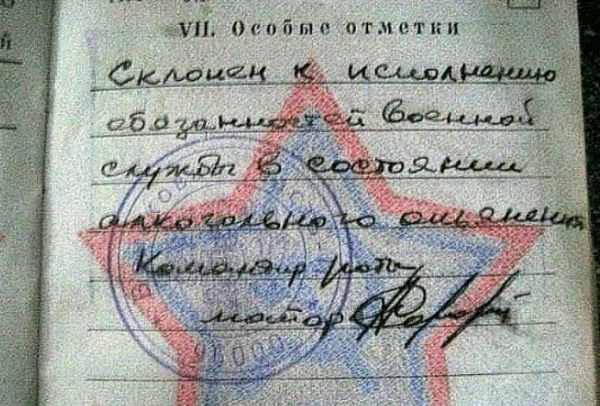 VII. Особые отметки
Склонен к исполнению
обязанностей военной
службы в состоянии
алкогольного опьянения
Командир роты
майор
00096